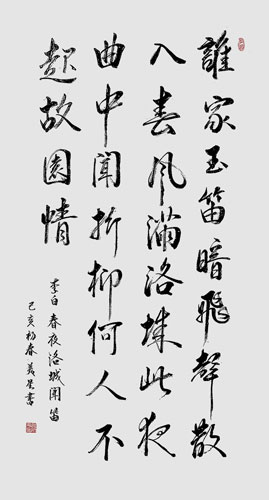 誰家玉笛暗飛聲散
入春風滿洛城此夜
曲中聞折柳何人不
起故園情
李白春夜洛城聞笛
己亥初春書